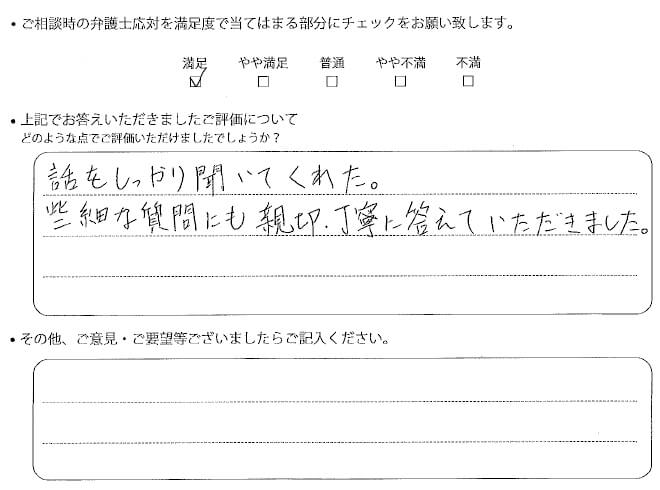 • ご相談時の弁護士応対を満足度で当てはまる部分にチェックをお願い致します。
満足 やや満足 普通 やや不満 不満
☑ ☐ ☐ ☐ ☐
• 上記でお答えいただきましたご評価について
どのような点でご評価いただけましたでしょうか？
話をしっかり聞いてくれた。
些細な質問にも親切、丁寧に答えていただきました。
• その他、ご意見・ご要望等ございましたらご記入ください。